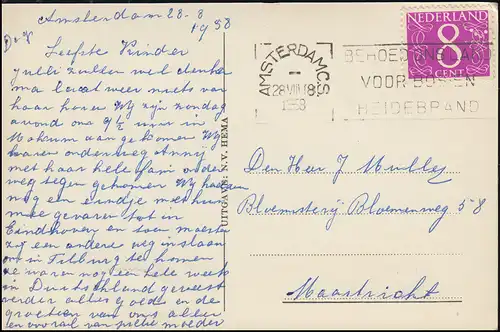 Amsterdam 28-8
1958
Leefste Kinder
jullie zullen wel denken
ma laat weer niets van
haar horen Wy zijn zondag
avond om 9½ uur in
Mokum aan gekomen Wy
waren onderweg Annij
met haar hele fam onder
weg tegen gekomen Wy hadden
nog een eindje met hun
mee gevaren tot in
Eindhoven en toen moesten
zij een andere weg inslaan
om in Tilburg te komen
ze waren nog een hele week
in Duitschland geweest
verder alles goed en de
groeten van ons allen
en vooral van jullie moeder
UITGAVE: N.V. HEMA
AMSTERDAM CS
28 VIII 18
1958
BEHOED
VOOR BOS EN
HEIDEBRAND
NEDERLAND
8
CENT
Den Heer J Mulley
Bloemsterij Bloemenweg 58
Maastricht